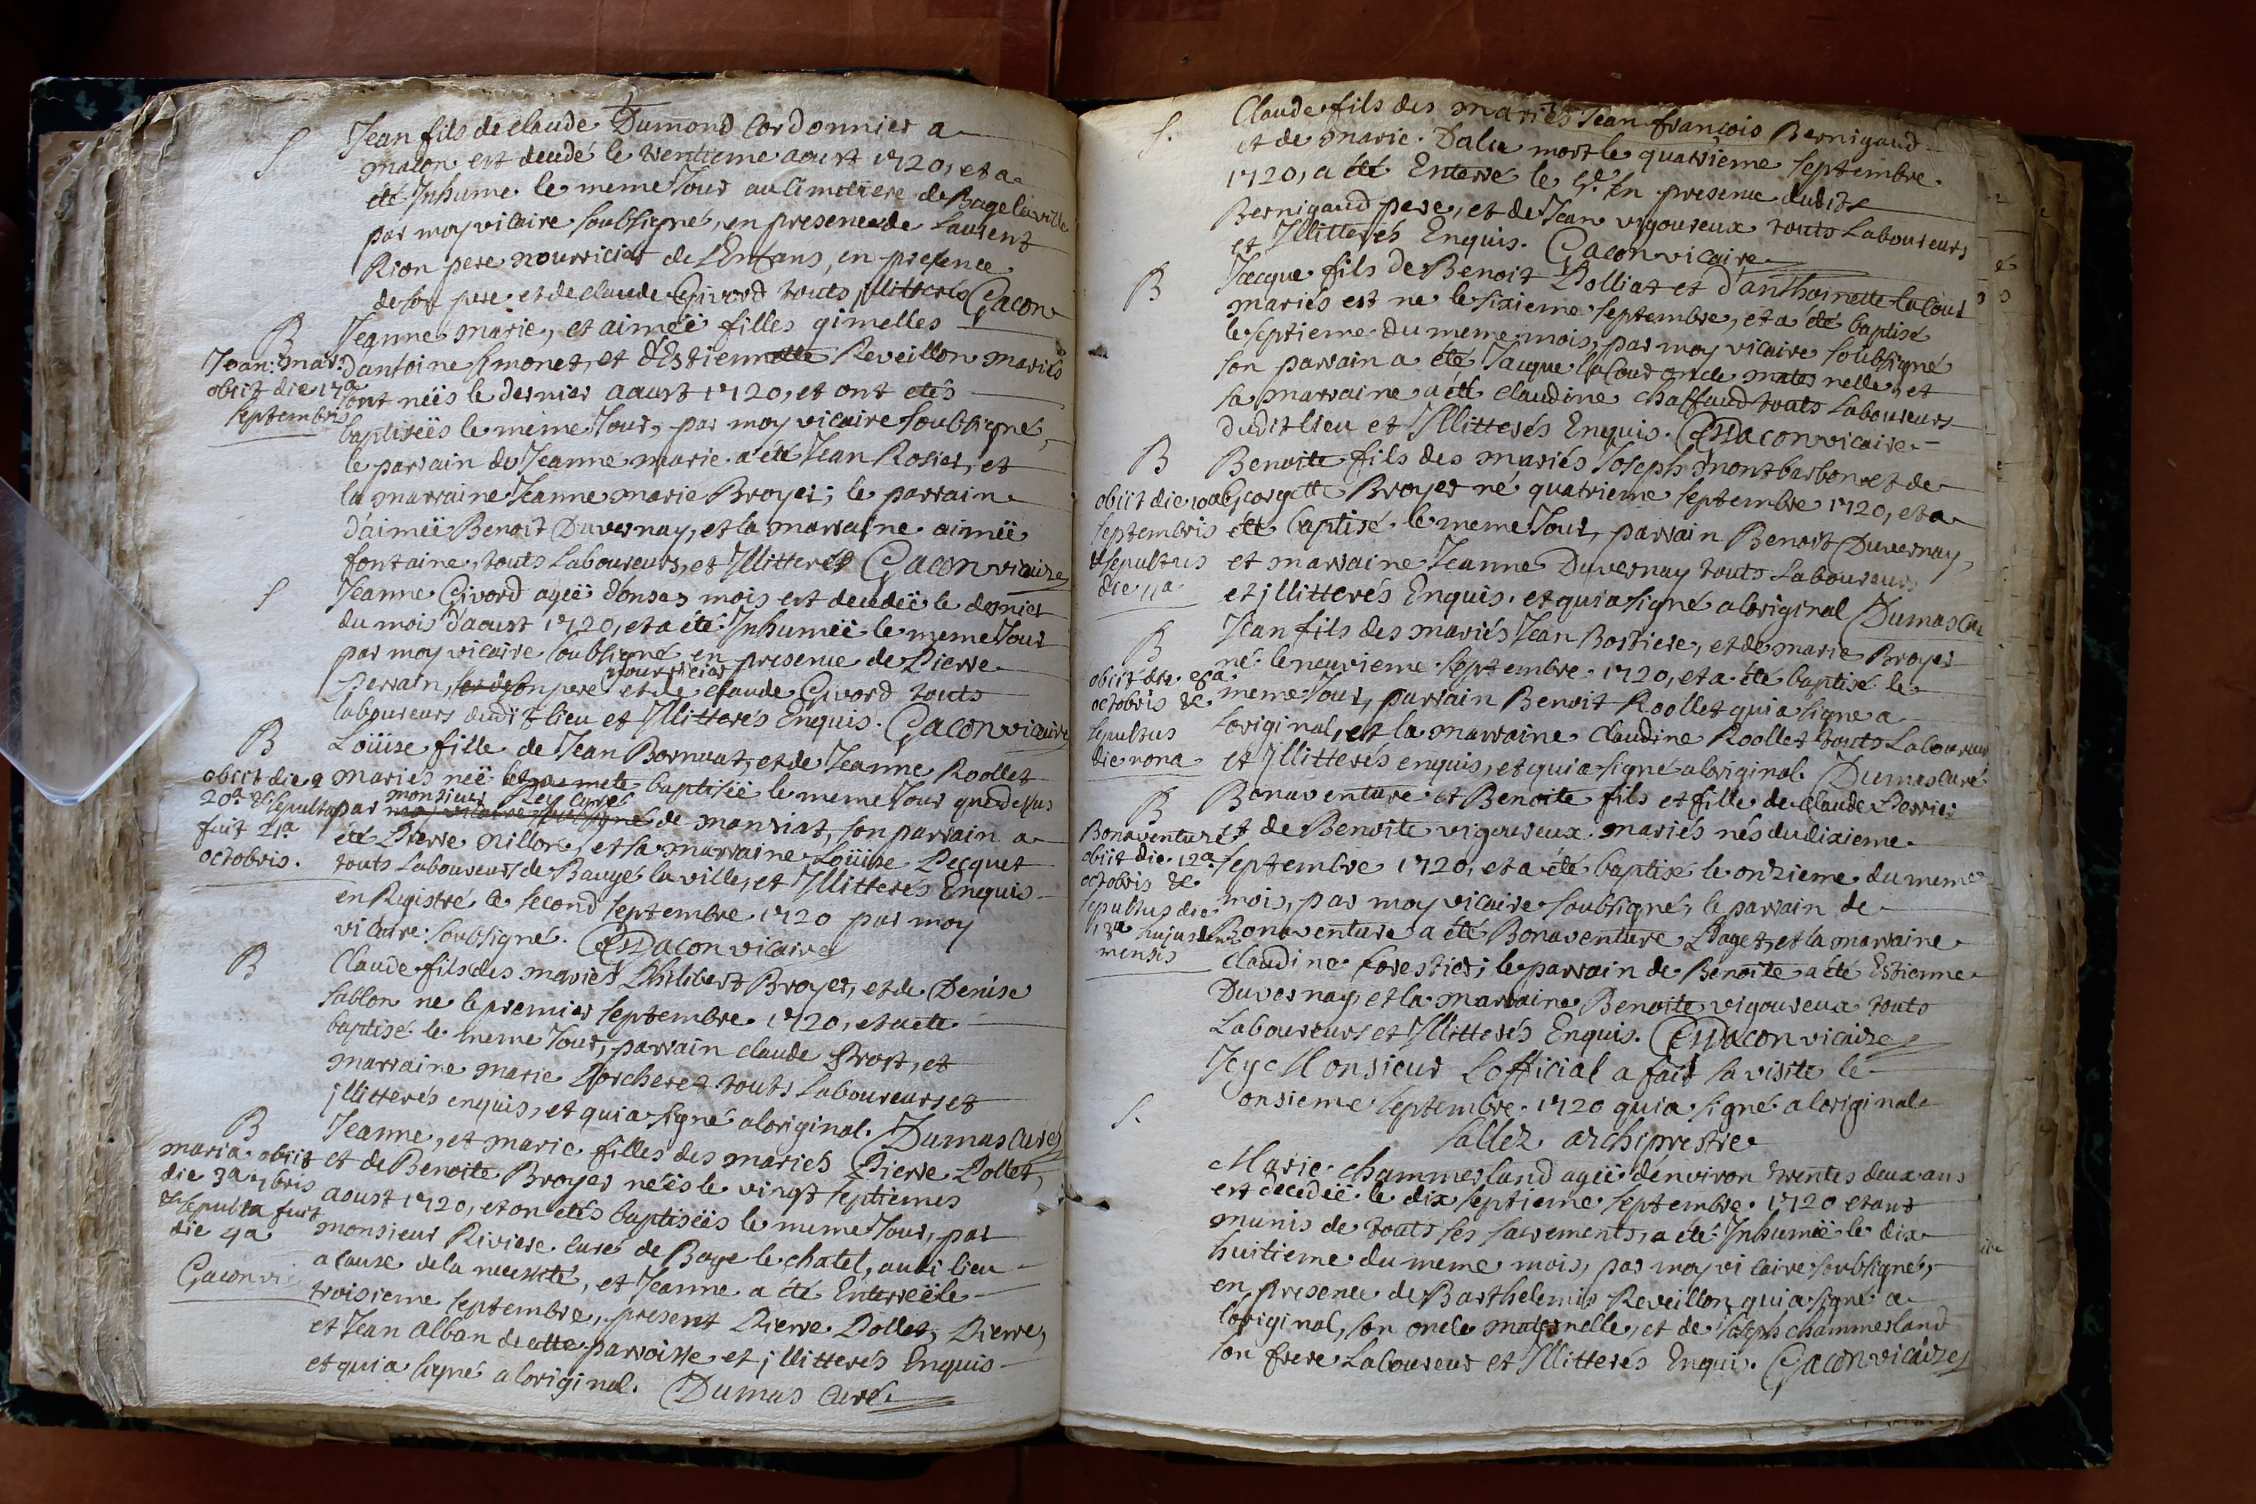 S Jean fils de claude Dumond Cordonnier a
macon est decedé le trentieme aoust 1720, et a
été Inhumé le meme Jour au Cimetiere de Bage la ville
par moy vicaire soubsigné, en presence de Laurent
Rion pere nourricier de l'Enfans, en presence
de son pere et de claude Givord touts illitterés Gacon
B Jeanne marie, et aimeë filles gimelles
Jean: mar: d'antoine Simonet, et d'Estiennette Reveillon mariés
obiit die 17a sont neës le dernier aaust 1720, et ont etés
septembris baptiseës le même Jour, par moy vicaire soubsigné,
le parrain de Jeanne marie a été Jean Rosier, et
la marraine Jeanne marie Broyer; le parrain
d'aimeë Benoit Duvernay, et la marraine aimeë
fontaine, touts Laboureurs, et Illitterés Gacon vicaire
S Jeanne Givord ageë d'onses mois est decedeë le dernier
du mois d'aoust 1720, et a été Inhumeë le meme Jour
par moy vicaire soubsigné en presence de Pierre
nourricier
Perrain, son pere et de claude Givord touts
laboureurs dudit lieu et Illitterés Enquis. Gacon vicaire
B Loüise fille de Jean Bornuat, et de Jeanne Roollet
obiit die mariés neë baptiseë le meme Jour que desus
monsieur Rey curé
20a & sepulta par moy vicaire soubsigné de manziat, son parrain a
fuit 21a été Pierre Nillon, et la marraine Loüise Pecquet
octobris. touts Laboureurs de Baugé la ville, et Illitterés Enquis
en Registré le second septembre 1720 par moy
vicaire soubsigné. Gacon vicaire
B Claude fils des mariés Philibert Broyer, et de Denise
Sablon né le premier septembre 1720, et a été
baptisé le meme Jour, parrain claude Brost, et
marraine marie Porcheret touts Laboureurs et
illitterés enquis, et qui a signé a loriginal. Dumas Curé
B Jeanne, et marie filles des mariés Pierre Pollet,
maria obiit et de Benoite Broyer neës le vingt septiemes
die 3a 7bris aoust 1720, et on etés baptiseës le meme Jour, par
& sepulta fuit monsieur Riviere curé de Bage le chatel, audi lieu
die 4a a cause de la necessité, et Jeanne a été Enterreë le
Gacon vi troisieme septembre, present Pierre Pollet, Pierre,
et Jean alban de cette parroisse et illitterés Enquis
et qui a signé a loriginal. Dumas Curé
S. Claude fils des mariés Jean françois Bernigaud
et de marie Dalin mort le quatrieme septembre
1720, a été Enterré le 5e. En presence dudit
Bernigaud pere, et de Jean vigoureux touts Laboureurs
et Illitterés Enquis. Gacon vicaire
B Jacque fils de Benoit Polliat et d'anthoinette la Cour
mariés est né le sixieme septembre, et a été baptisé
le septieme du meme mois, par moy vicaire soubsigné
son parrain a été Jacque la Cour oncle maternelle, et
sa marraine a été claudine chaffaud touts Laboureurs
dudit lieu et Illitterés Enquis. Gacon vicaire
B Benoite fils des mariés Joseph montbarbon et de
obiit die 10a Georgette Broyer né quatrieme septembre 1720, et a
septembris été baptisé le meme Jour, parrain Benoit Duvernay,
& sepultus et marraine Jeanne Duvernay touts Laboureurs
die 11a et illitterés Enquis. et qui a signé a loriginal Dumas Cu
B Jean fils des mariés Jean Bostiere, et de marie Broyer
obiit die 8a né le neuvieme septembre 1720, et a été baptisé le
octobris & meme Jour, parrain Benoit Roollet qui a signé a
sepultus loriginal, et la marraine Claudine Roollet touts Laboureurs
die nona et Illitterés enquis, et qui a signé a loriginal. Dumas Curé
B Bonaventure et Benoite fils et fille de Claude Perrier
Bonaventure et de Benoite vigoureux mariés nés du dixieme
obiit die 12a septembre 1720, et a été baptisé le onzieme du meme
octobris & mois, par moy vicaire soubsigné, le parrain de
sepultus die Bonaventure a été Bonaventure Paget, et la marraine
13a hujus Claudine forestier; le parrain de Benoite a été Estienne
mensis Duvernay, et la marraine Benoite vigoureux touts
Laboureurs et Illitterés Enquis. Gacon vicaire
Icy Monsieur Lofficial a fait sa visite le
onsieme septembre 1720 qui a signé a loriginal
Sallez archiprestre
S. Marie chammerland ageë denviron trentes deux ans
est decedeë le dix septieme septembre 1720 etant
munis de touts ses sacrements, a été Inhumeë le dix
huitieme du meme mois, par moy vicaire soubsigné,
en presence de Barthelemis Reveillon qui a signé a
loriginal, son oncle maternelle, et de Joseph chammerland
son frere Laboureur et Illitterés Enquis. Gacon vicaire